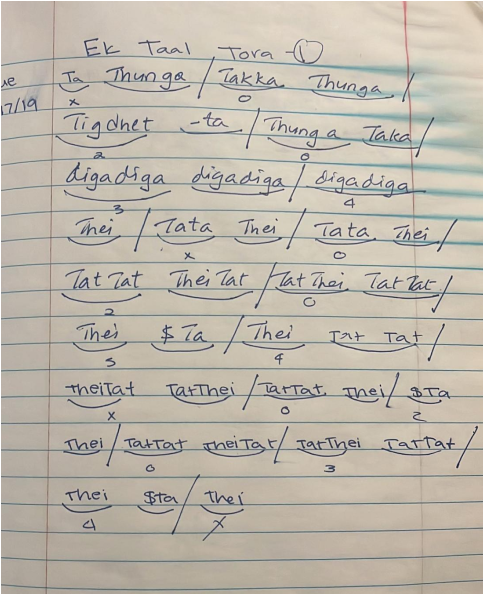 Ek Taal Tora - ①
ue
17/19
Ta Thunga / Takka Thunga /
x 0
Tigdhet -ta / Thunga Taka /
2 0
digadiga digadiga / digadiga
3 4
Thei / Tata Thei / Tata Thei /
x 0
Tat Tat Thei Tat / Tat Thei Tat Tat /
2 0
Thei $ Ta / Thei Tat Tat /
3 4
TheiTat TatThei / TatTat Thei / $Ta
x 0 2
Thei / TatTat TheiTat / TatThei TatTat /
0 3
Thei $ta / Thei
4 x